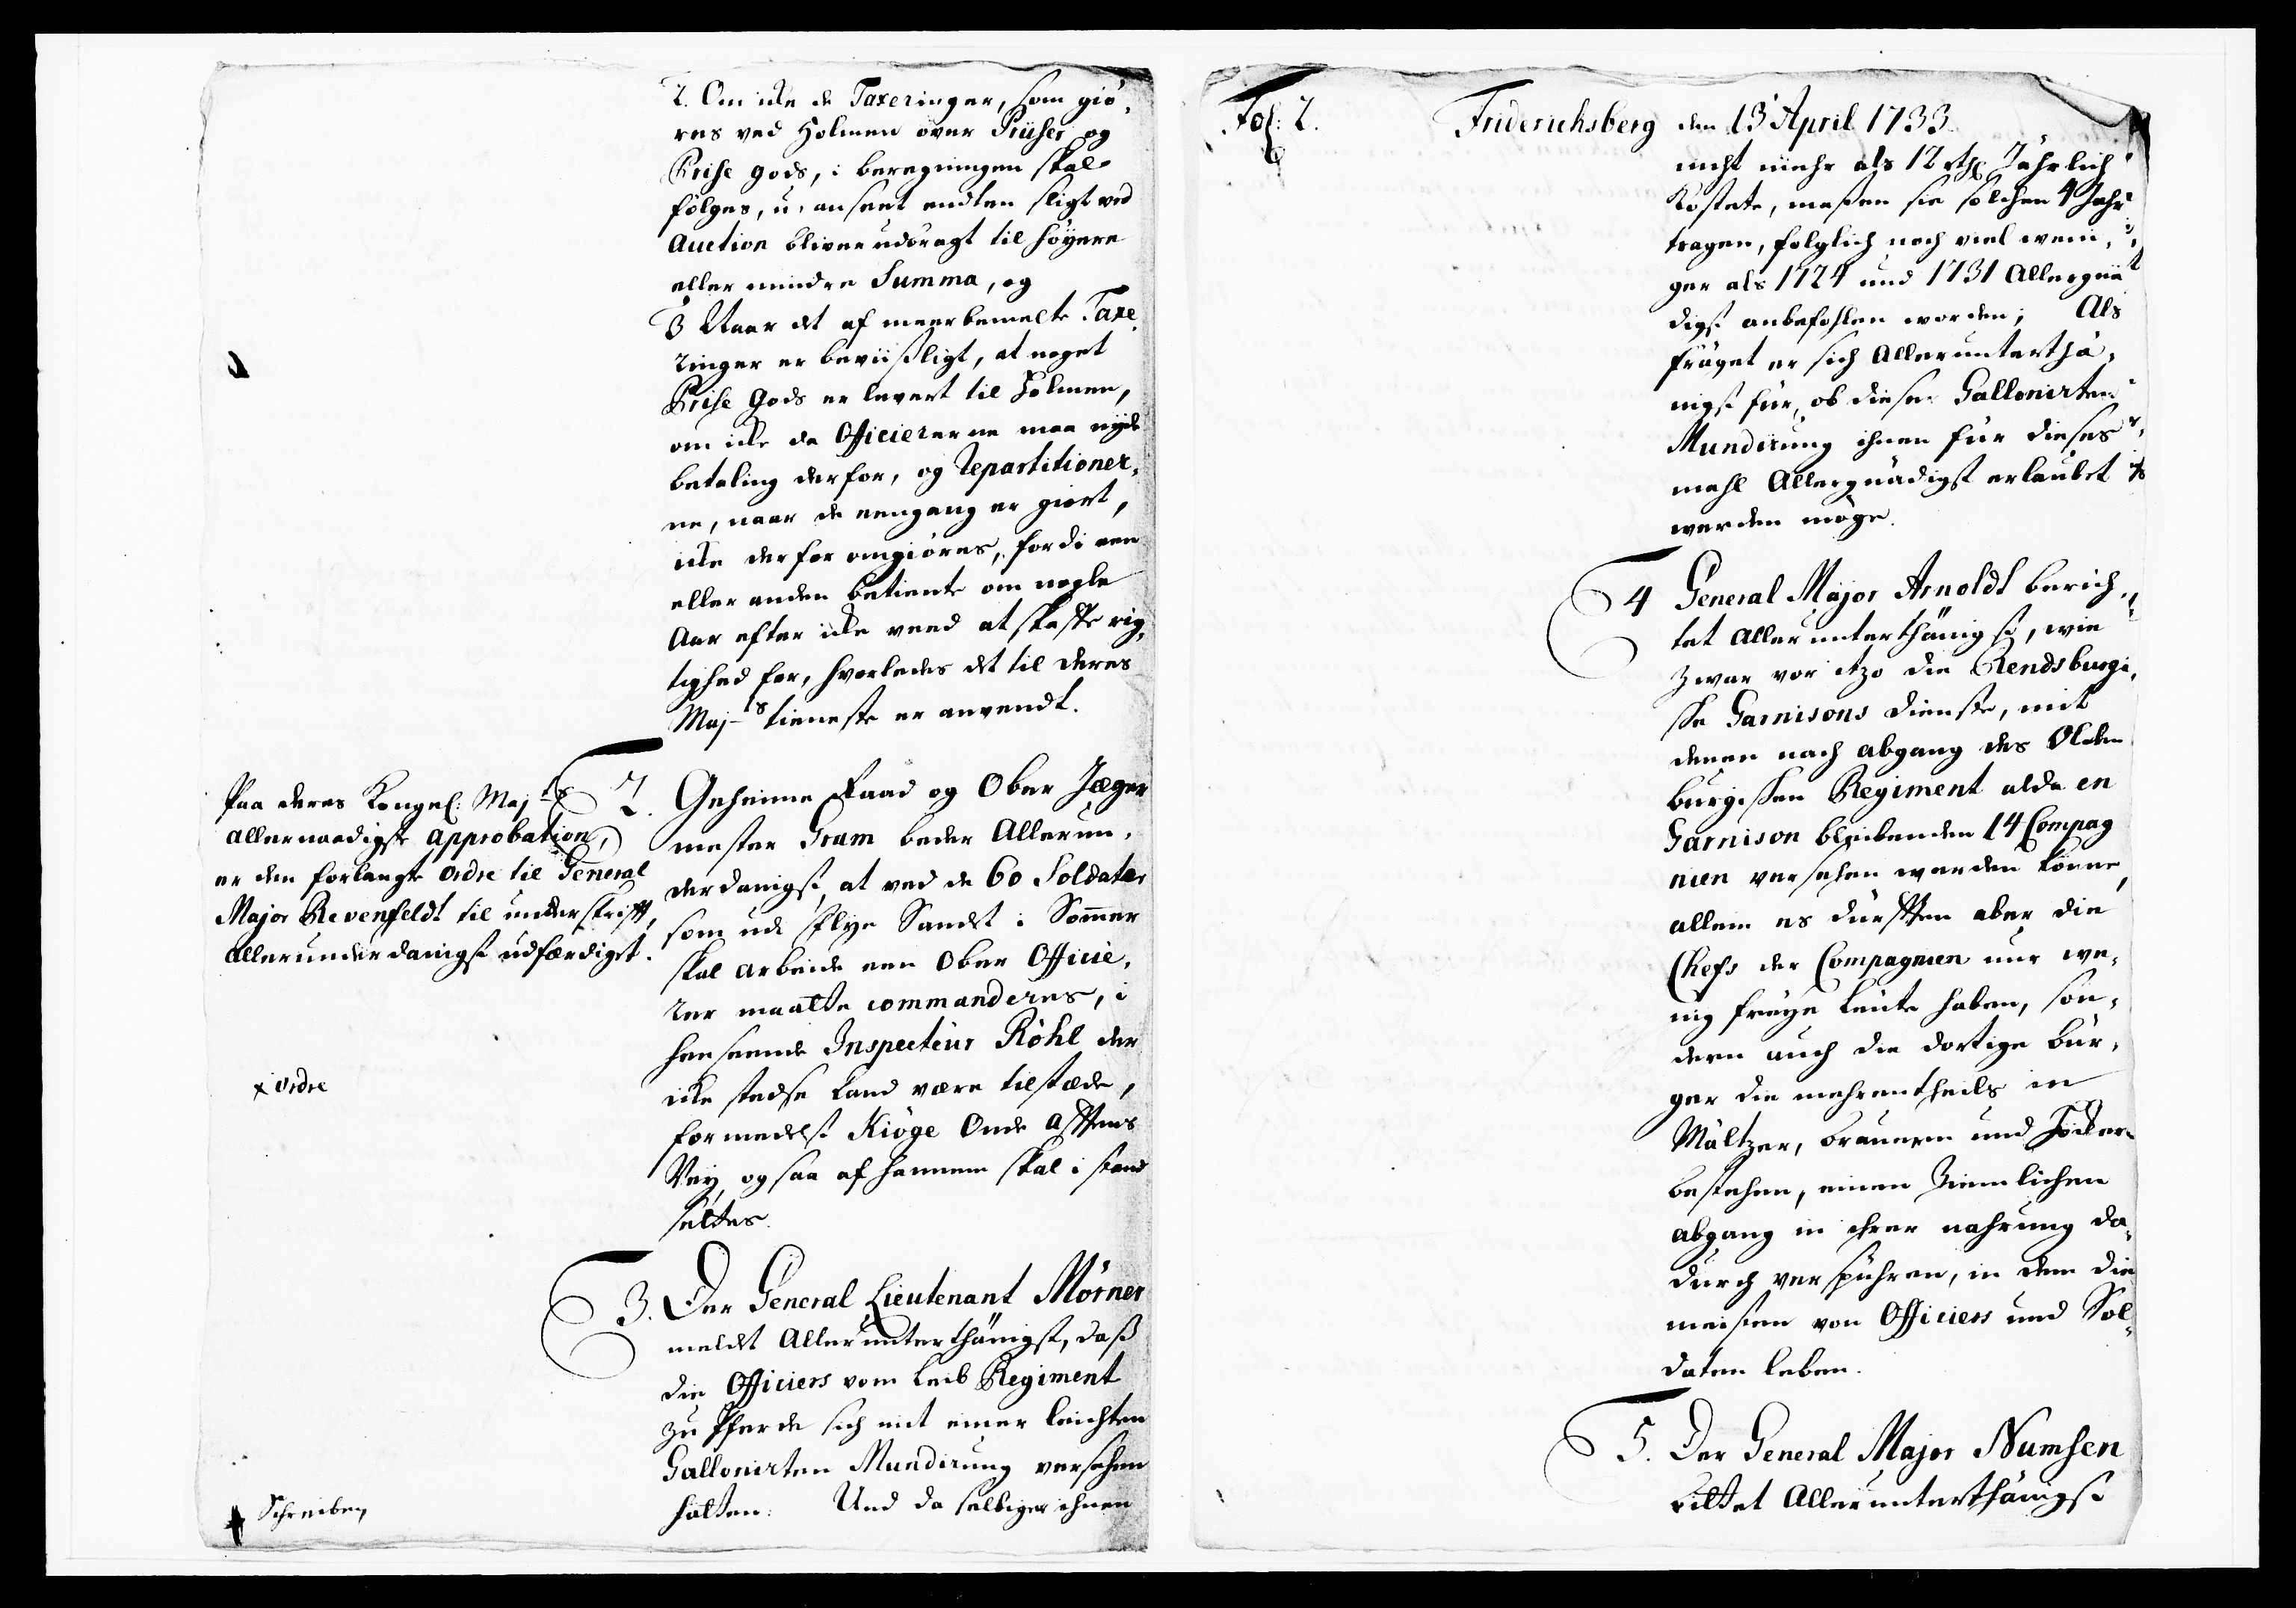 2. Om icke de Taxeringer, som giö,
res ved Holmen över Priiser og
Prise gods, i beregningen skal
fölges, u-anseet endten sligt ved
Auction bliver udbragt til höyere
eller mindre Summa, og
3 Naar det af meerbemelte Taxe,
ringer er beviisligt, at noget
Prise Gods er levert til Holmen,
om icke da Officiererne maa nyde
betaling derfor, og Repartitioner,
ne, naar de eengang er giort,
icke derfor omgiöres, fordi een
eller anden betiente om nogle
Aar efter icke veed at skaffe rig,
tighed for, hvorledes det til deres
Maj-ts tieneste er anvendt.
Paa deres Kongel: Maj-ts
allernaadigste approbation,
er den forlangte Ordre til General
Major Revenfeldt til underskrifft,
allerunderdanigst udfærdiget.
2. Geheime Raad og Ober Jæger
mester Gram beder Allerun,
derdanigst, at ved de 60 Soldater
som ud Flye Sandet i Sommer
skal arbeide een Ober Officie,
rer maatte commanderes, i
henseende Inspecteur Röhl der
icke stedse kand være tilstæde,
formedelst Kiöge Ende
Vey, og saa af hannem skal i stand
settes.
x Ordre
3. Der General Lieutenant Mörner
meldet Allerunterthänigst, daß
die Officiers vom Leib Regiment
zu Pferde sich mit einer leichten
Gallonirten Mundirung versehen
hätten: Und da selbiger ihnen
Schreiben
Fol: 2.
Friderichsberg den 13 April 1733.
nicht mehr als 12 rthl Jährlich
Kostete, maßen sie solchen 4 Jahr
tragen, folglich noch viel weni,
ger als 1724 und 1731 Allergnä
digst anbefohlen worden; Als
fräget er sich Allerunterthä,
nigst für, ob diese Gallonirten
Mundirung ihnen für dieses
mahl Allergnädigst erlaubet
werden möge.
4 General Major Arnoldt berich,
tet Allerunterthänigst, wie
zwar vor itzo die Rendsburgi,
sche Garnisons Dienste, mit
denen nach abgang des Olden
burgischen Regiment alda en
Garnison bleibenden 14 Compag
nien versehen werden könne,
allein es dürfften aber die
Chefs der Compagnien nur we,
nig freye Leute haben, son,
dern auch die dortige Bür,
ger die mehrentheils in
Mältzer, Brauern und Höcker
bestehen, einen Ziemlichen
abgang in ihrer nahrung da,
durch verspühren, in dem die
meisten von Officiers und Sol,
daten leben.
5. Der General Major Numsen
bittet Allerunterthänigst